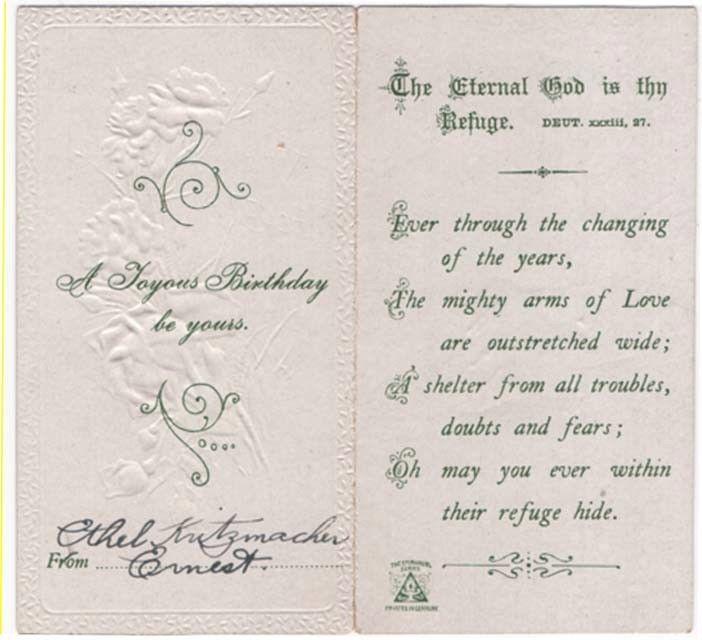 A Joyous Birthday
be yours.
Ethel Kritzmacher
From Ernest.
The Eternal God is thy
Refuge. DEUT. xxxiii, 27.
Ever through the changing
of the years,
The mighty arms of Love
are outstretched wide;
A shelter from all troubles,
doubts and fears;
Oh may you ever within
their refuge hide.
THE EMMANUEL
SERIES
PRINTED IN GERMANY